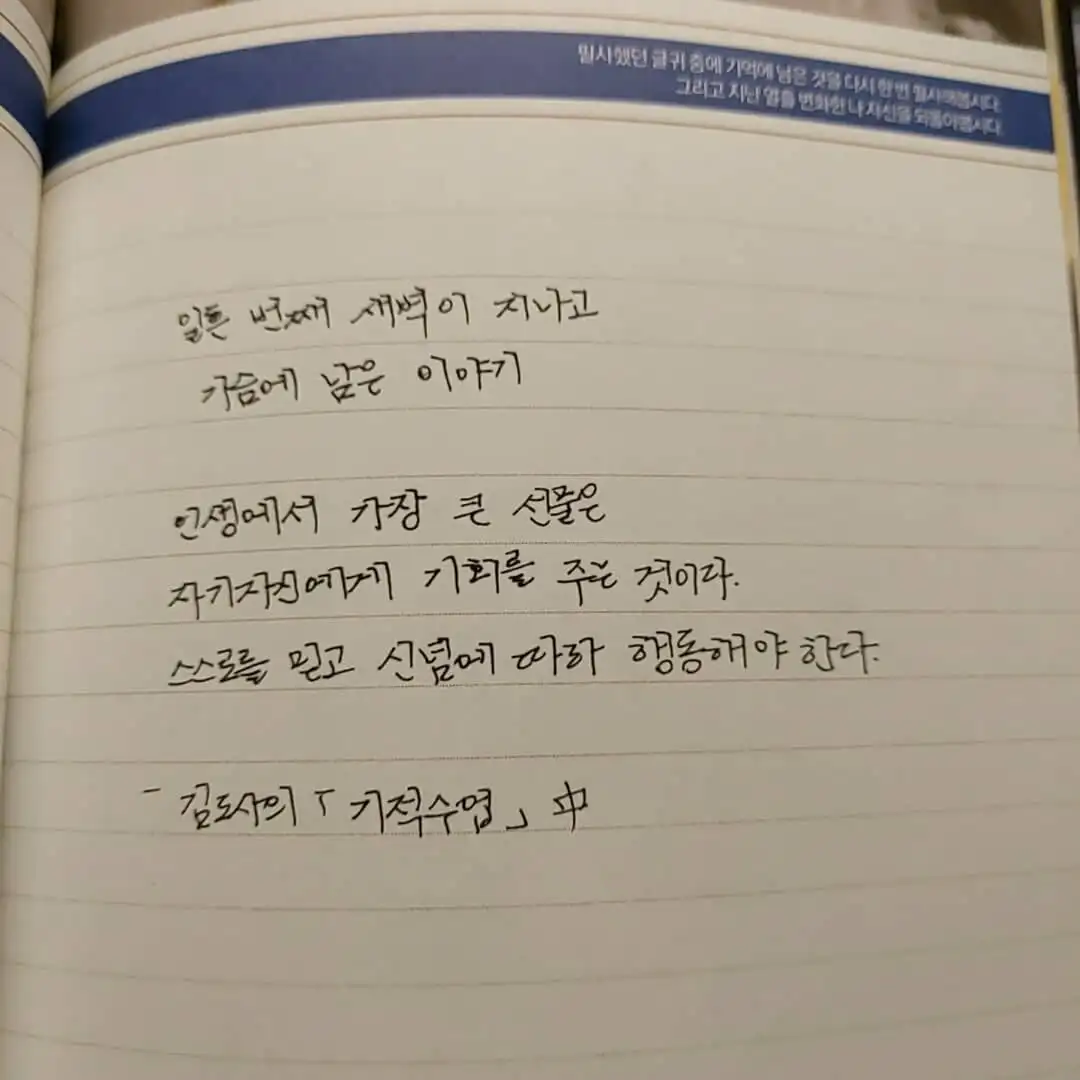 필사했던 글귀 중에 기억에 남은 것을 다시 한 번 필사해봅시다.
그리고 지난 열흘 변화한 나 자신을 되돌아봅시다.
일흔 번째 새벽이 지나고
가슴에 남은 이야기
인생에서 가장 큰 선물은
자기자신에게 기회를 주는 것이다.
스스로를 믿고 신념에 따라 행동해야 한다.
- 김도사의 「기적수업」 中